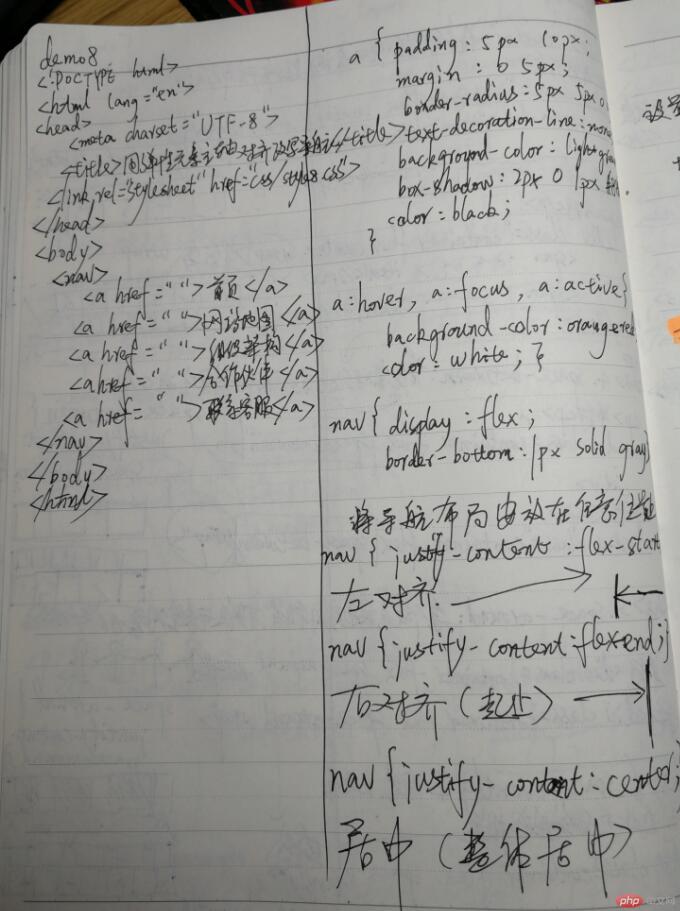 demo8
<!DOCTYPE html>
<html lang="en">
<head>
<meta charset="UTF-8">
<title>用弹性元素主轴对齐改写导航</title>
<link rel="stylesheet" href="css/style8.css">
</head>
<body>
<nav>
<a href=" ">首页</a>
<a href=" ">网站地图</a>
<a href=" ">组织架构</a>
<a href=" ">合作伙伴</a>
<a href=" ">联系客服</a>
</nav>
</body>
<html>
a { padding: 5px 10px;
margin: 0 5px;
border-radius: 5px 5px 0
text-decoration-line: none
background-color: lightgray
box-shadow: 2px 0 1px
color: black;
}
a:hover, a:focus, a:active{
background-color: orangered
color: white; }
nav{ display: flex;
border-bottom: 1px solid gray;
将导航布局由放在任意位置
nav { justify-content: flex-start
左对齐
nav {justify-content: flex-end;}
右对齐(起止)
nav {justify-content: center;
居中(整体居中)
设置
php